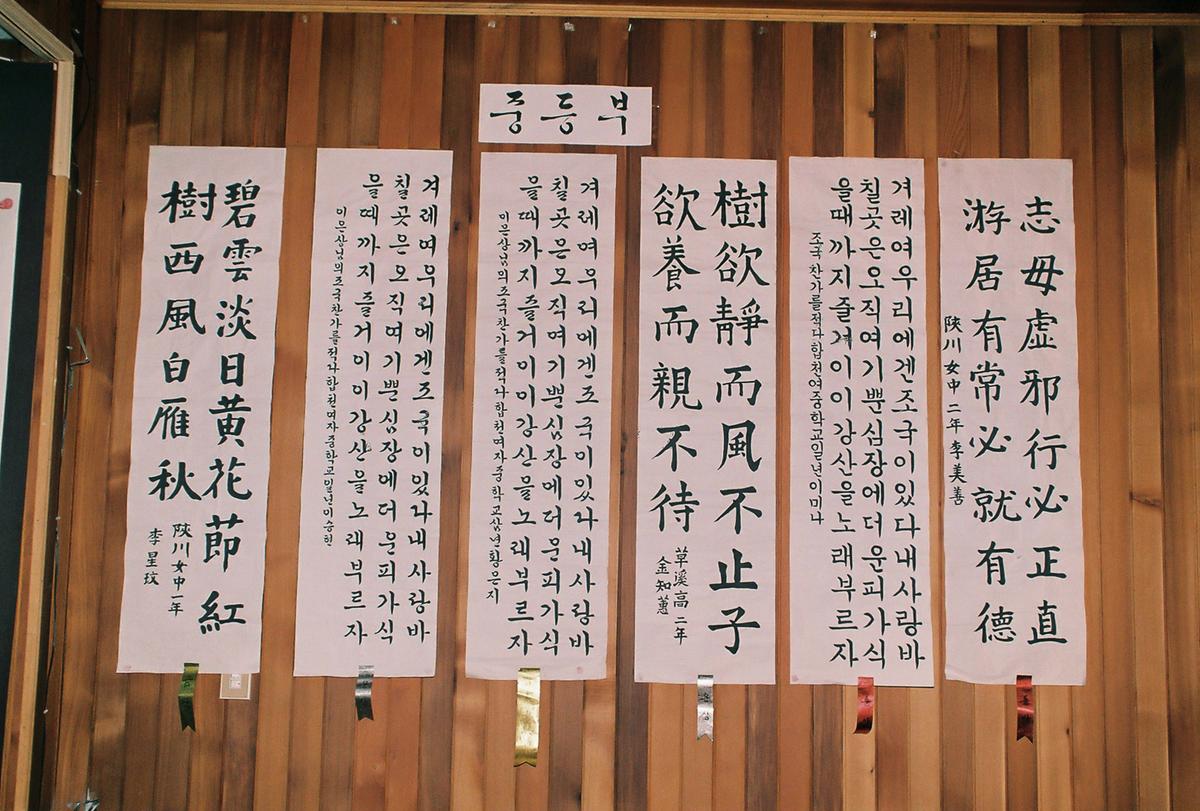 중등부
志毋虛邪行必正直
游居有常必就有德
陜川女中 二年 李美善
겨레여우리에겐조국이있다내사랑바
칠곳은오직여기뿐심장에더운피가식
을때까지즐거이이강산을노래부르자
조국찬가를적다합천여중학교일년이미나
樹欲靜而風不止子
欲養而親不待
草溪高 二年
金知蕙
겨레여우리에겐조국이있다내사랑바
칠곳은오직여기뿐심장에더운피가식
을때까지즐거이이강산을노래부르자
이은상님의조국찬가를적다합천여자중학교삼년황은지
겨레여우리에겐조국이있다내사랑바
칠곳은오직여기뿐심장에더운피가식
을때까지즐거이이강산을노래부르자
이은상님의조국찬가를적다합천여자중학교일년이승현
碧雲淡日黃花節 紅
樹西風白雁秋
陜川女中一年
李星玟